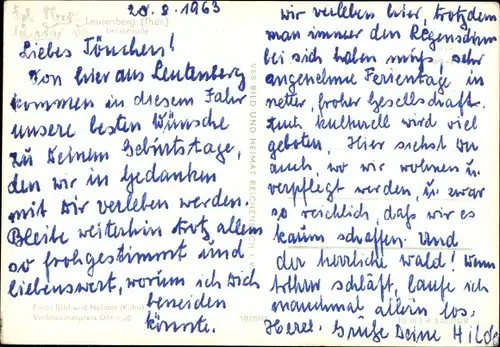 20.8.1963
Leutenberg (Thür.)
Liebes Tönchen!
Von hier aus Leutenberg
kommen in diesem Jahr
unsere besten Wünsche
zu Deinem Geburtstage,
den wir in Gedanken
mit Dir verleben werden.
Bleibe weiterhin trotz allem
so frohgestimmt und
liebenswert, worum ich Dich
beneiden
könnte.
Foto: Bild und Heimat (Kühn)
Verbraucherpreis DM -,20
VEB BILD UND HEIMAT REICHENBACH i. V.
Wir verleben hier, trotzdem
man immer den Regenschirm
bei sich haben muß, sehr
angenehme Ferientage in
netter, froher Gesellschaft.
Auch kulturell wird viel
geboten. Hier siehst Du
auch wo wir wohnen u.
verpflegt werden, u. zwar
so reichlich, daß wir es
kaum schaffen. Und
der herrliche Wald! Wenn
schläft, laufe ich
manchmal allein los.
Herzl. Grüße Deine Hilde